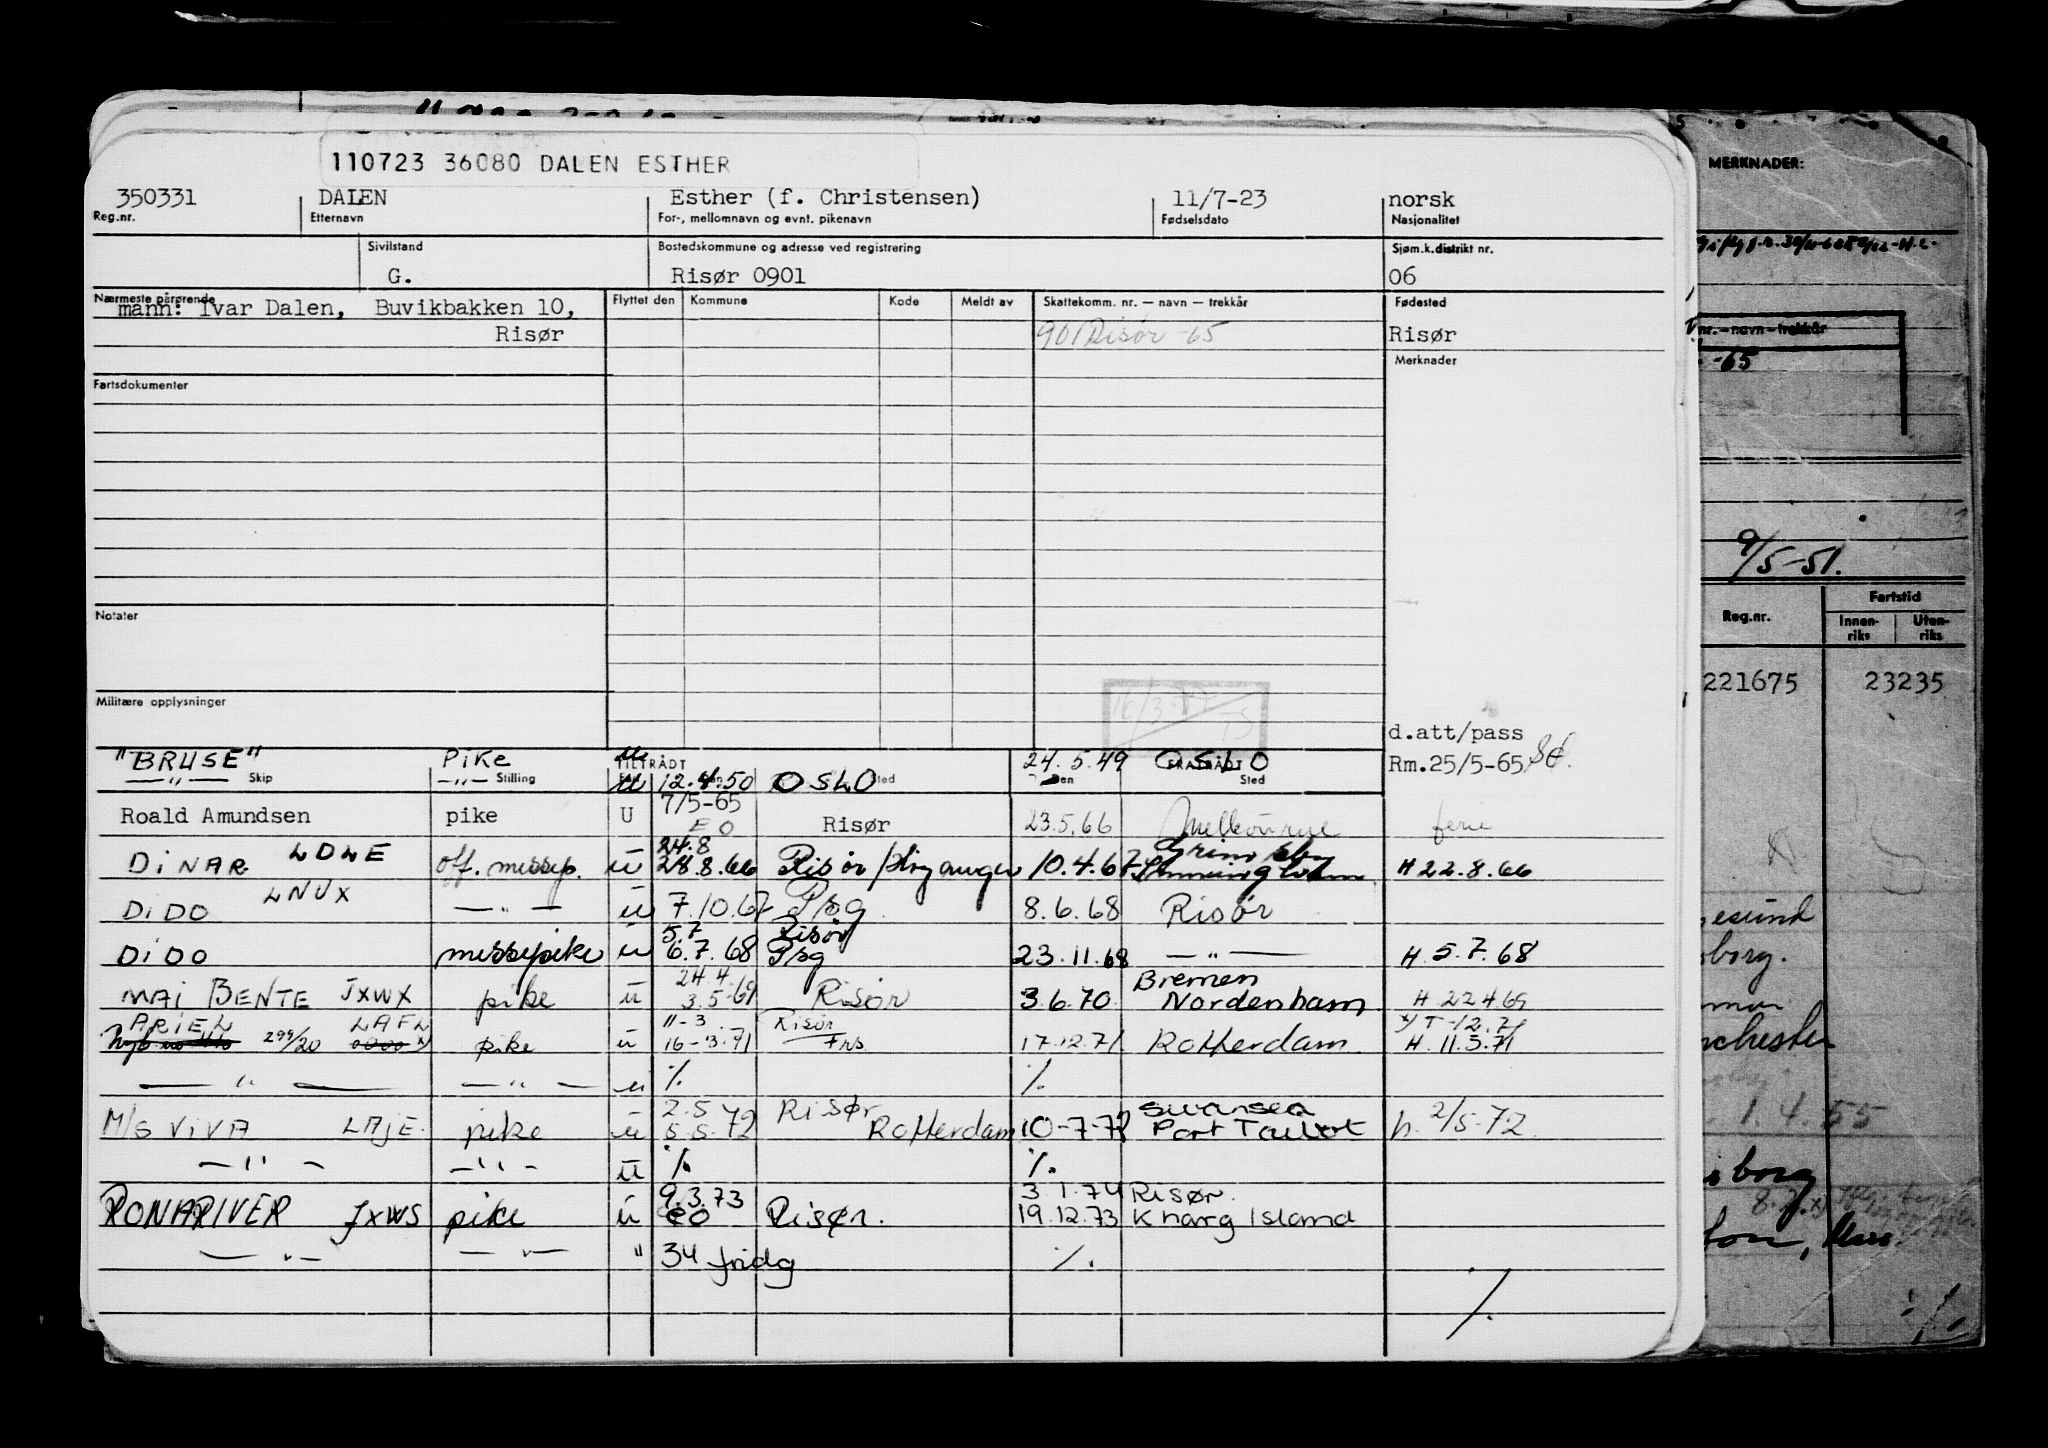 110723 36080 DALEN ESTHER
350331 DALEN Esther (f. Christensen) 11/7-23 norsk
Reg.nr. Etternavn For-, mellomnavn og evnt. pikenavn Fødselsdato Nasjonalitet
Sivilstand Bostedskommune og adresse ved registrering Sjøm.k.distrikt nr.
G. Risør 0901 06
Nærmeste pårørende Flyttet den Kommune Kode Meldt av Skattekomm. nr. — navn — trekkår Fødested
mann: Ivar Dalen, Buvikbakken 10,
Risør 901 Risør -65 Risør
Merknader
Fartsdokumenter
Notater
Militære opplysninger
16/3-77
TS
d.att/pass
Rm.25/5-65
"BRUSE" Pike 24.5.49 OSLO
TILTRÅDT FRATRÅDT
—"— Skip —"— Stilling 12.4.50 OSLO Sted Den Sted
7/5-65
Roald Amundsen pike U EO Risør 23.5.66 Melbourne ferie
24.8
DiNAR LDLE off. messep. u 28.8.66 Risør / 10.4.67 H 22.8.66
DiDO LNUX —"— u 7.10.67 Psg 8.6.68 Risør
5.7 Risør
DiDO messepike u 6.7.68 Psg 23.11.68 —"— H 5.7.68
24.4 Bremen
MAi BENTE JXWX pike u 3.5-69 Risør 3.6.70 Nordenham H 22469
ARIEL LAFL 11-3 Risør x) T-12.71
299/20 pike u 16-3-71 FNS 17.12.71 Rotterdam H. 11.3.71
—"— —"— u % %
2.5 Risør Swansea
M/S ViVA LAJE pike u 5.5.72 Rotterdam 10-7-72 Port Talbot h. 2/5-72
—"— —"— u % %
9.3.73 3.1.74 Risør.
RONARIVER JXWS pike u EO Risør. 19.12.73 Kharg Island
—"— —"— " 34 fridg %
%
MERKNADER:
nr.—navn—trekkår
-65
9/5-51.
Reg.nr. Fartstid
Innen-riks Uten-riks
221675 23235
1.4.55